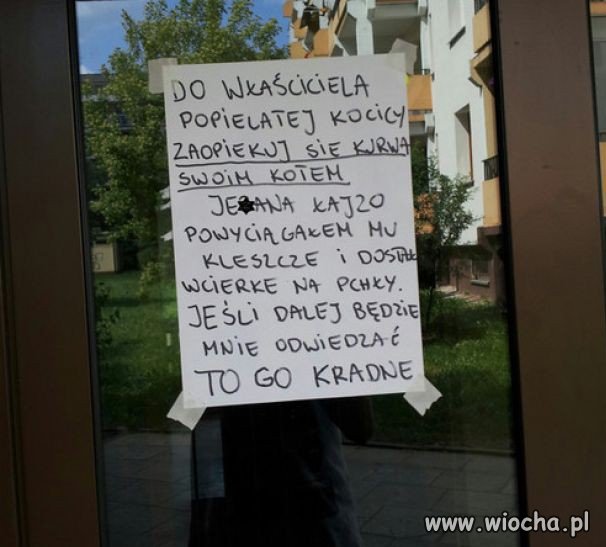 DO WŁAŚCICIELA
POPIELATEJ KOCICY
ZAOPIEKUJ SIĘ KURWA
SWOIM KOTEM
JEBANA ŁAJZO
POWYCIĄGAŁEM MU
KLESZCZE I DOSTAŁ
WCIERKE NA PCHŁY.
JEŚLI DALEJ BĘDZIE
MNIE ODWIEDZAĆ
TO GO KRADNE
www.wiocha.pl